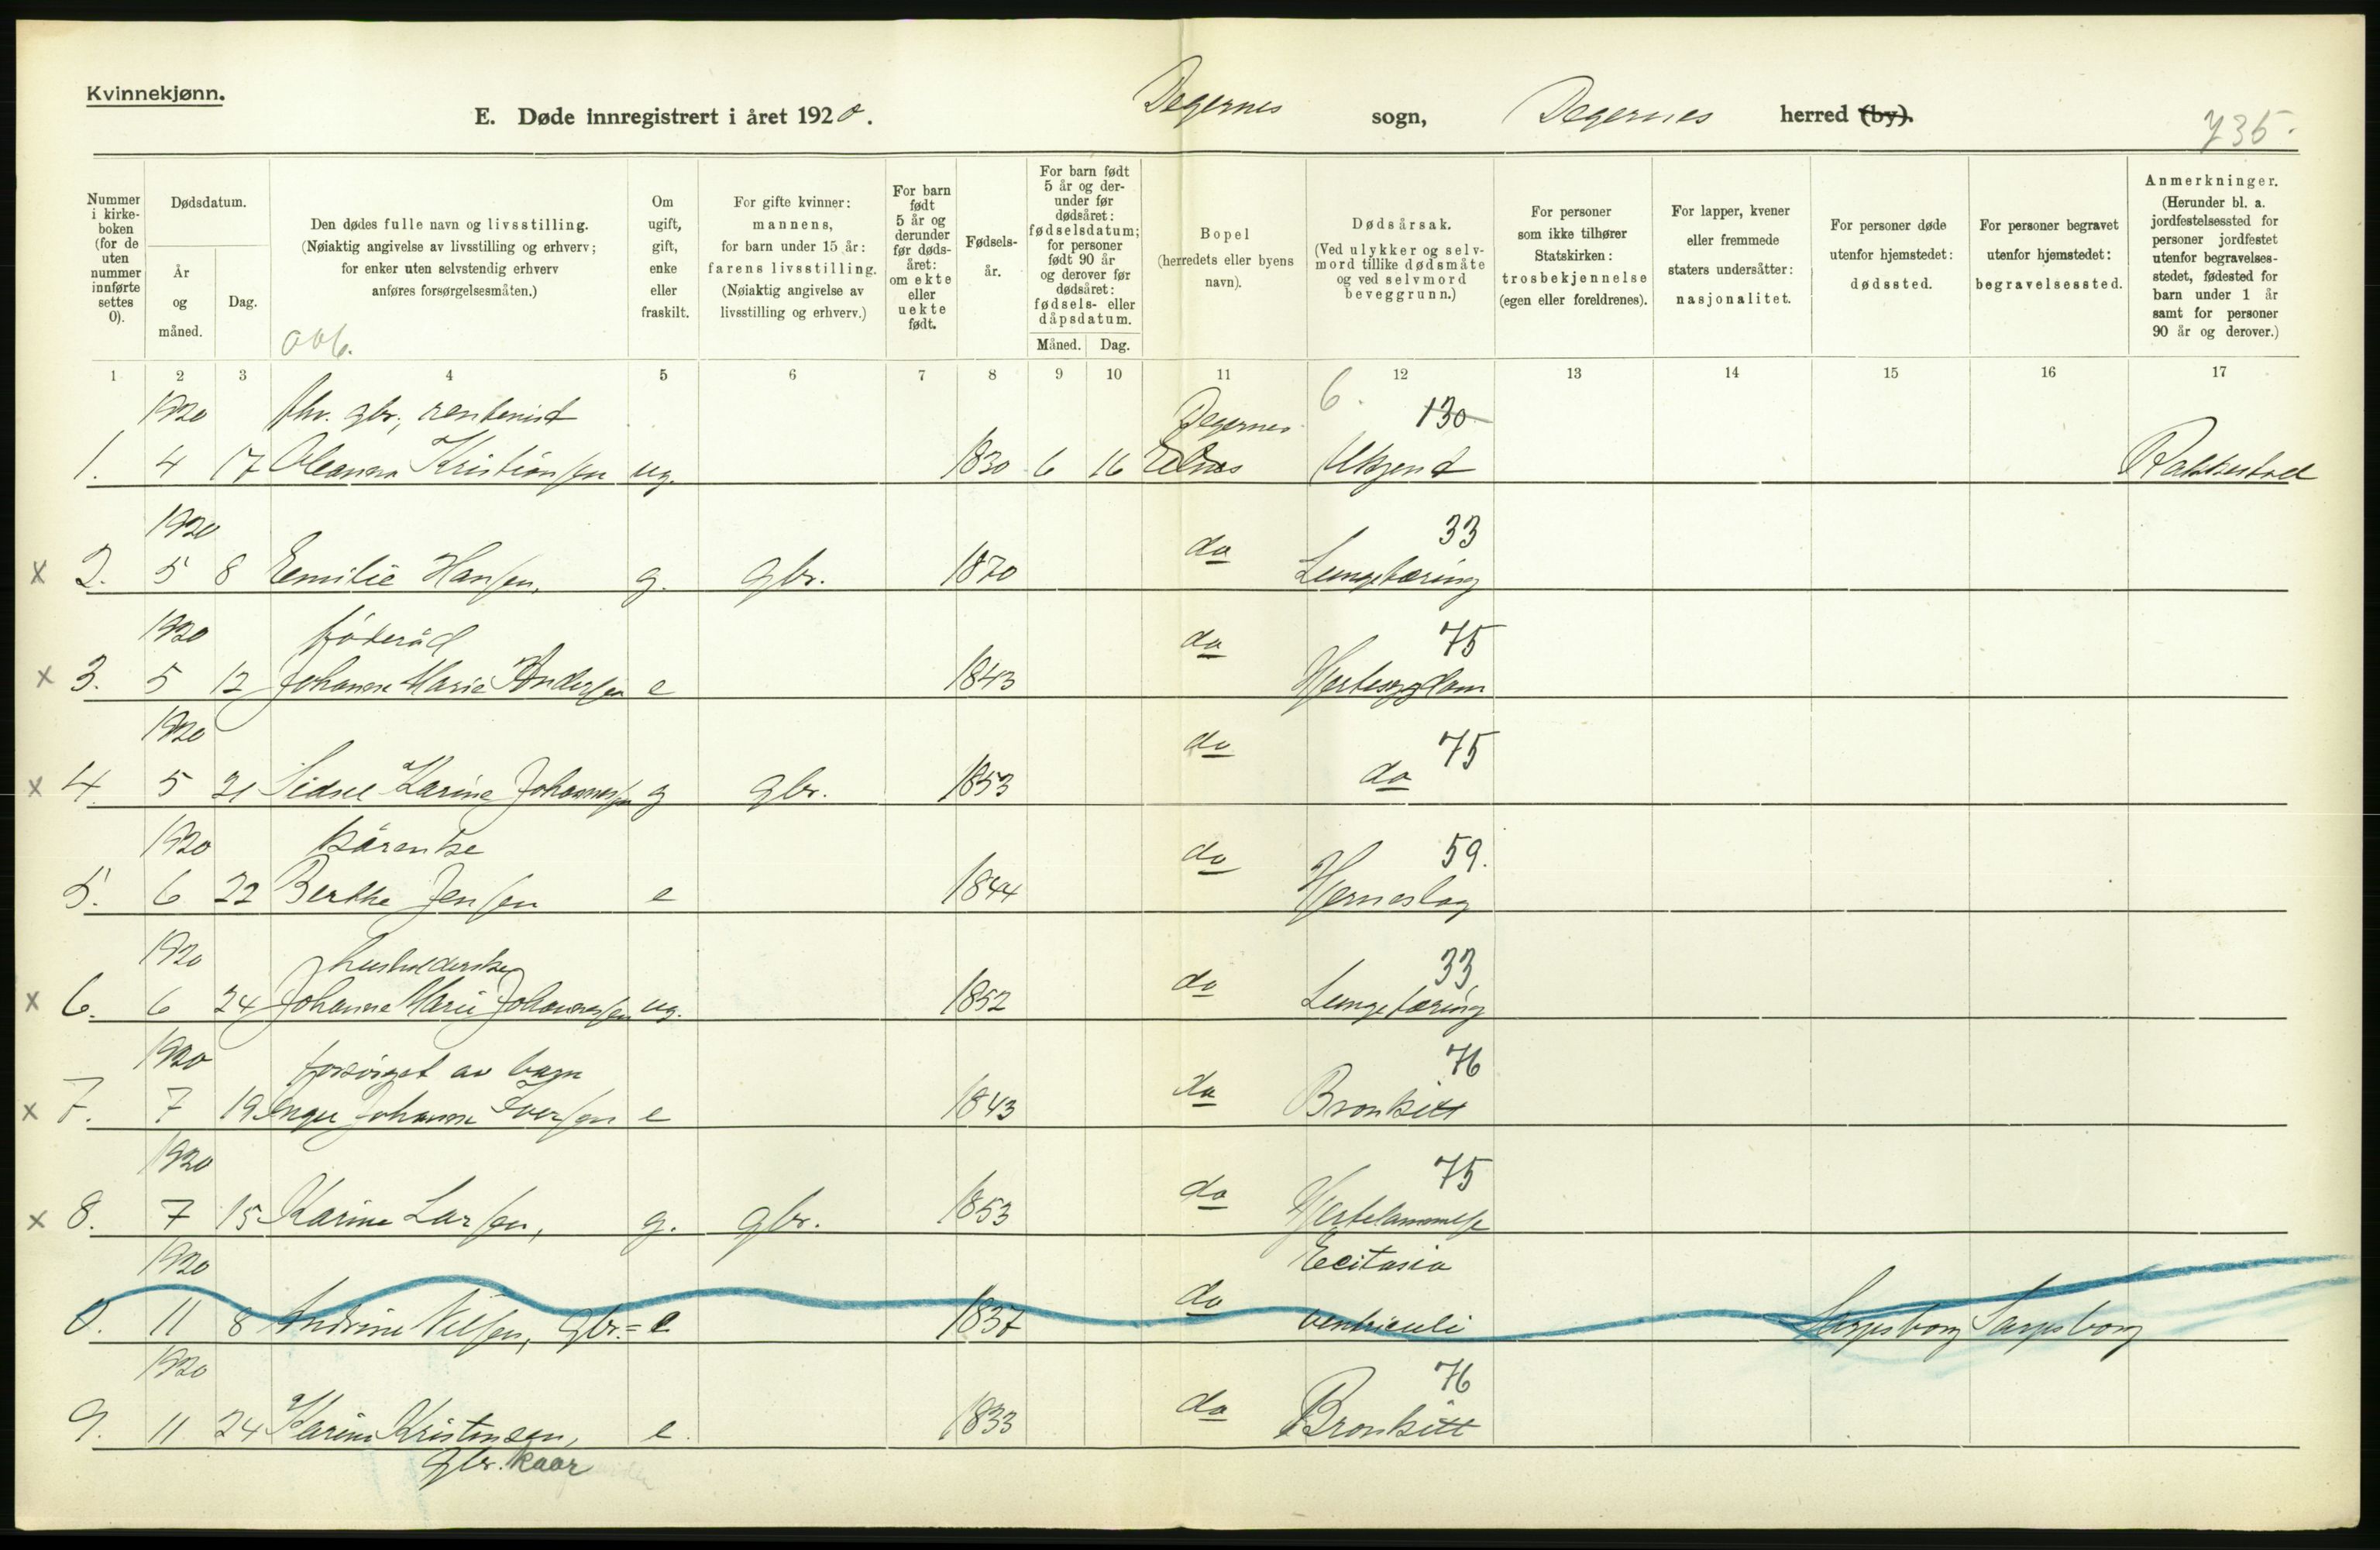 Kvinnekjønn.
E. Døde innregistrert i året 1920.
Degernes sogn, Degernes herred (by).
735.
Nummer i kirke- boken (for de uten nummer innførte settes 0).
Dødsdatum.
År og måned.
Dag.
Den dødes fulle navn og livsstilling.
(Nøiaktig angivelse av livsstilling og erhverv;
for enker uten selvstendig erhverv
anføres forsørgelsesmåten.)
Om ugift, gift, enke eller fraskilt.
For gifte kvinner:
mannens,
for barn under 15 år:
farens livsstilling.
(Nøiaktig angivelse av
livsstilling og erhverv.)
For barn født 5 år og derunder før døds- året: om ekte eller uekte født.
Fødsels- år.
For barn født 5 år og der- under før dødsåret: fødselsdatum; for personer født 90 år og derover før dødsåret: fødsels- eller dåpsdatum.
Måned. Dag.
Bopel
(herredets eller byens
navn).
Dødsårsak.
(Ved ulykker og selv-
mord tillike dødsmåte
og ved selvmord
beveggrunn.)
For personer
som ikke tilhører
Statskirken:
trosbekjennelse
(egen eller foreldrenes).
For lapper, kvener
eller fremmede
staters undersåtter:
nasjonalitet.
For personer døde
utenfor hjemstedet:
dødssted.
For personer begravet
utenfor hjemstedet:
begravelsessted.
Anmerkninger.
(Herunder bl. a.
jordfestelsessted for
personer jordfestet
utenfor begravelses-
stedet, fødested for
barn under 1 år
samt for personer
90 år og derover.)
1 2 3 4 5 6 7 8 9 10 11 12 13 14 15 16 17
1920 fhv. gbr., rentenist Degernes 6. 130
1. 4 17 Oleanna Kristiansen ug. 1830 6 16 Ukjend Rakkestad
1920 do 33
x 2. 5 8 Emilie Hansen, g. gbr. 1870 Lungetæring
1920 føderåd do 75
x 3. 5 12 Johanne Marie Andersen e 1843 Hjertesygdom
1920 do 75
x 4. 5 21 Sidsel Karine Johannessen g gbr. 1853 do
1920 kårenke do 59.
5. 6 22 Berthe Jensen e 1844 Hjerneslag
1920 husholderske do 33
x 6. 6 24 Johanne Marie Johannessen ug. 1852 Lungetæring
1920 forsørget av barn do 76
x 7. 7 19 Inger Johanne Iversen e 1843 Bronkitt
1920 do 75
x 8. 7 15 Karine Larsen, g. gbr. 1853 Hjertelammelse
1920 do
0. 11 8 Andrine Nilsen, gbr. = e 1837 ventriculi Sarpsborg Sarpsborg
1920 do 76
9. 11 24 Karine Kristensen, e. 1833 Bronkitt
gbr. kaar